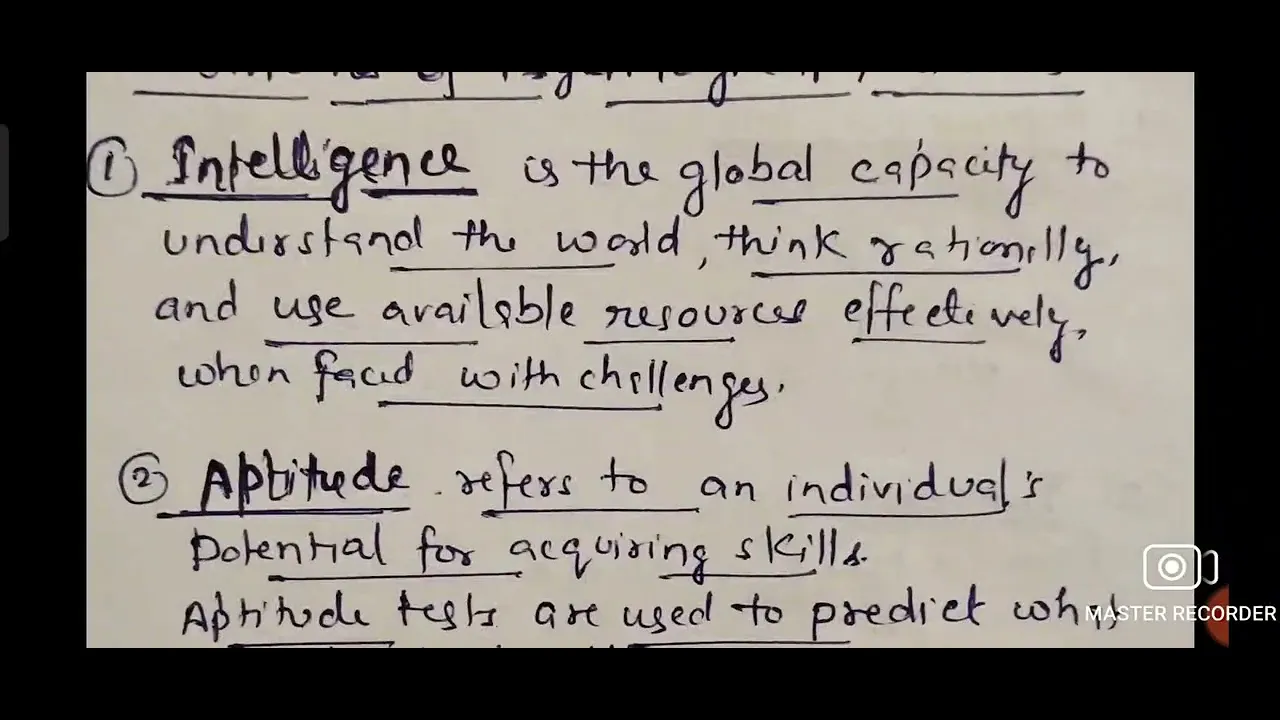 ① Intelligence is the global capacity to
understand the world, think rationally,
and use available resources effectively,
when faced with challenges.
② Aptitude refers to an individual's
potential for acquiring skills.
Aptitude tests are used to predict what
MASTER RECORDER